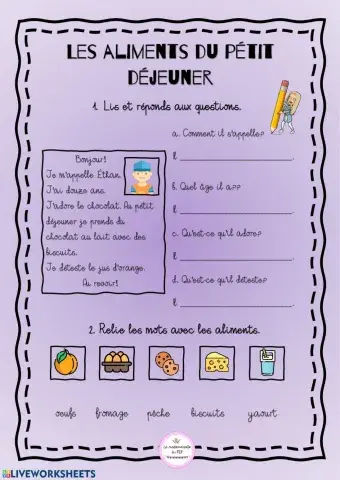 LES ALIMENTS DU PÉTIT
DÉJEUNER
1. Lis et réponds aux questions.
a. Comment il s'appelle?
Il
Bonjour!
Je m'appelle Éthan.
J'ai douze ans.
J'adore le chocolat. Au pétit
déjeuner je prends du
chocolat au lait avec des
biscuits.
Je déteste le jus d'orange.
Au revoir!
b. Quel âge il a??
Il
c. Qu'est-ce qu'il adore?
Il
d. Qu'est-ce qu'il déteste?
Il
2. Relie les mots avec les aliments.
oeufs fromage pêche biscuits yaourt
LIVEWORKSHEETS